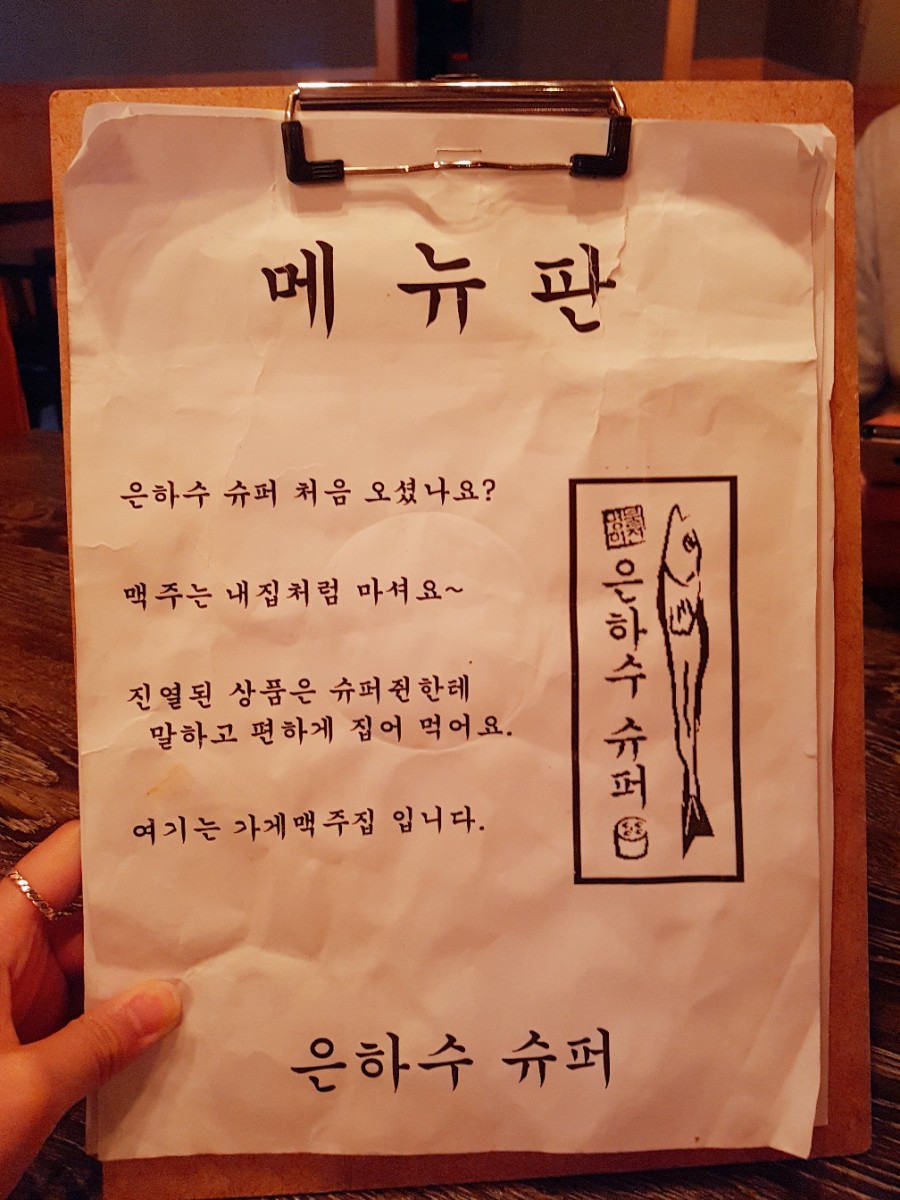 메뉴판
은하수 슈퍼 처음 오셨나요?
맥주는 내집처럼 마셔요~
진열된 상품은 슈퍼쥔한테
말하고 편하게 집어 먹어요.
여기는 가게맥주집 입니다.
은하수 슈퍼
은하수 슈퍼